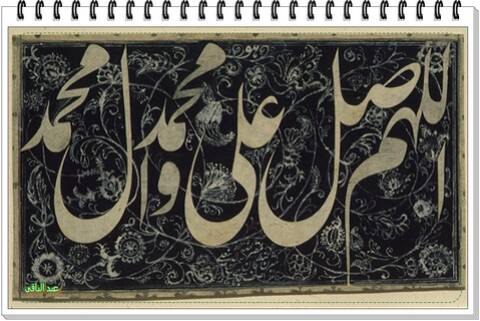 اللهم صل علی محمد وآل محمد
عبد الباقي